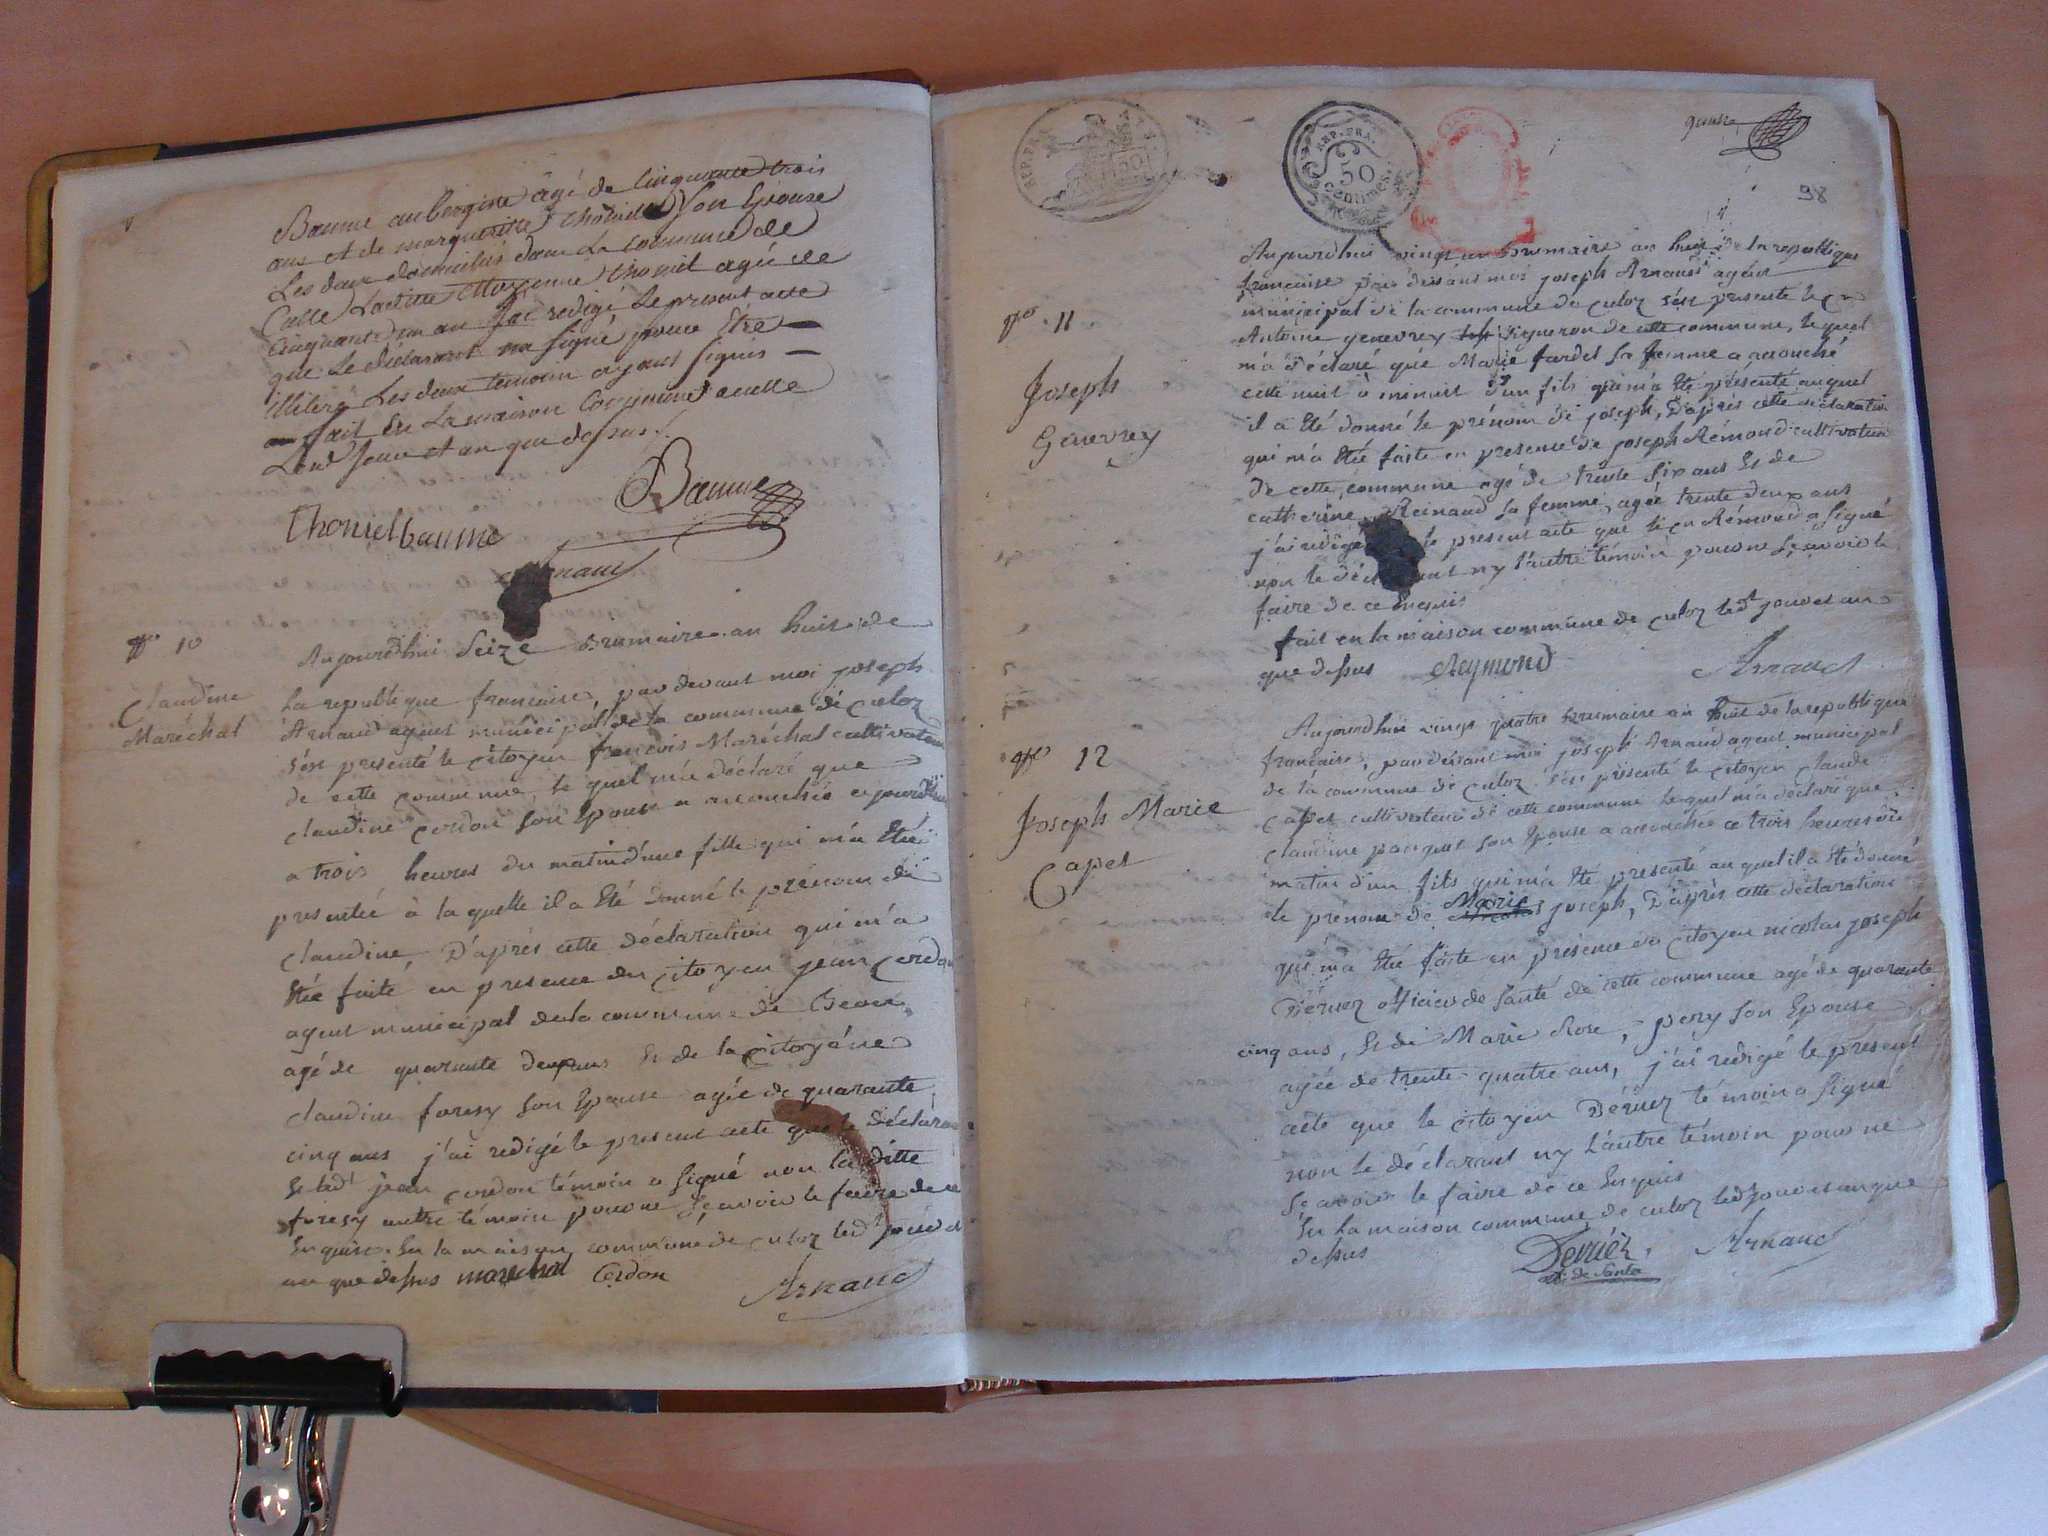 Baume aubergiste âgé de cinquante trois
ans et de margueritte thonilet son Epouse
Les deux domiciliés dans La commune de
Culle Laditte Citoyenne thonil agée de
cinquante un an Jai redigé Le present acte
que Le déclarant na signé pour Etre
illiteré Les deux temoin ayant signés
fait En La maison Commune de cette
Lesd jour et an que dessus./.
Baume
Thonielbaume
Arnaud
N° 10
Claudine
Maréchal
Aujourdhui Seize brumaire an huit de
la republique francaise, par devant moi joseph
Arnaud agent municipal de la commune de culoz
s'est presenté le citoyen francois Maréchal cultivateur
de cette commune, le quel m'a déclaré que
claudine cerdon son Epouse a accouchée ce jourdhui
a trois heures du matin d'une fille qui m'a Eté
presentée à la quelle il a Eté donné le prénom de
claudine, D'après cette déclaration qui m'a
Eté faite en presence du citoyen jean cerdon
agent municipal de la commune de
agé de quarante deux ans Et de la citoyéne
claudine foresy son Epouse agée de quarante
cinq ans j'ai redigé le present acte que le déclarant
Et led jean cerdon témoin a signé non la ditte
foresy autre témoin pour ne sçavoir le faire de ce
Enquise. En la maison commune de culoz led jour et
an que dessus marechal Cerdon
Arnaud
REP. FRA.
REP. FRA.
50
centimes
quinze
98
N° 11
Joseph
Genevrey
Aujourdhui vingt un brumaire an huit de la republique
francaise par devant moi joseph Arnaud agent
municipal de la commune de culoz s'est presenté le cn
Antoine genevrey vigneron de cette commune, le quel
m'a déclaré que Marie fardel sa femme a accouché
cette nuit à minuit d'un fils qui m'a Eté présenté auquel
il a Eté donné le prénom de joseph, D'après cette déclaration
qui m'a Eté faite en presence de joseph Rémond cultivateur
de cette commune agé de trente six ans Et de
catherine Reinaud sa femme, agée trente deux ans
j'ai redigé le present acte que le cn Rémond a signé
non le déclarant ny l'autre témoin pour ne sçavoir le
faire de ce Enquis
fait en la maison commune de culoz led jour et an
que dessus Reymond Arnaud
N° 12
Joseph Marie
Capet
Aujourdhui vingt quatre brumaire an huit de la republique
francaise, par devant moi joseph Arnaud agent municipal
de la commune de culoz s'est présenté le citoyen claude
capet cultivateur de cette commune le quel m'a déclaré que
claudine pasquet son Epouse a accouchée ce trois heures du
matin d'un fils qui m'a Eté présenté au quel il a Eté donné
le prénom de Marie joseph, D'après cette déclaration
qui m'a Eté faite en presence du citoyen nicolas joseph
Dérriez officier de santé de cette commune agé de quarante
cinq ans, Et de Marie Rose, pery son Epouse
agée de trente-quatre ans, j'ai redigé le present
acte que le citoyen Dérriez témoin a signé
non le déclarant ny l'autre témoin pour ne
sçavoir le faire de ce Enquis
En la maison commune de culoz led jour et an que
dessus Derriéz, Arnaud
off. de santé